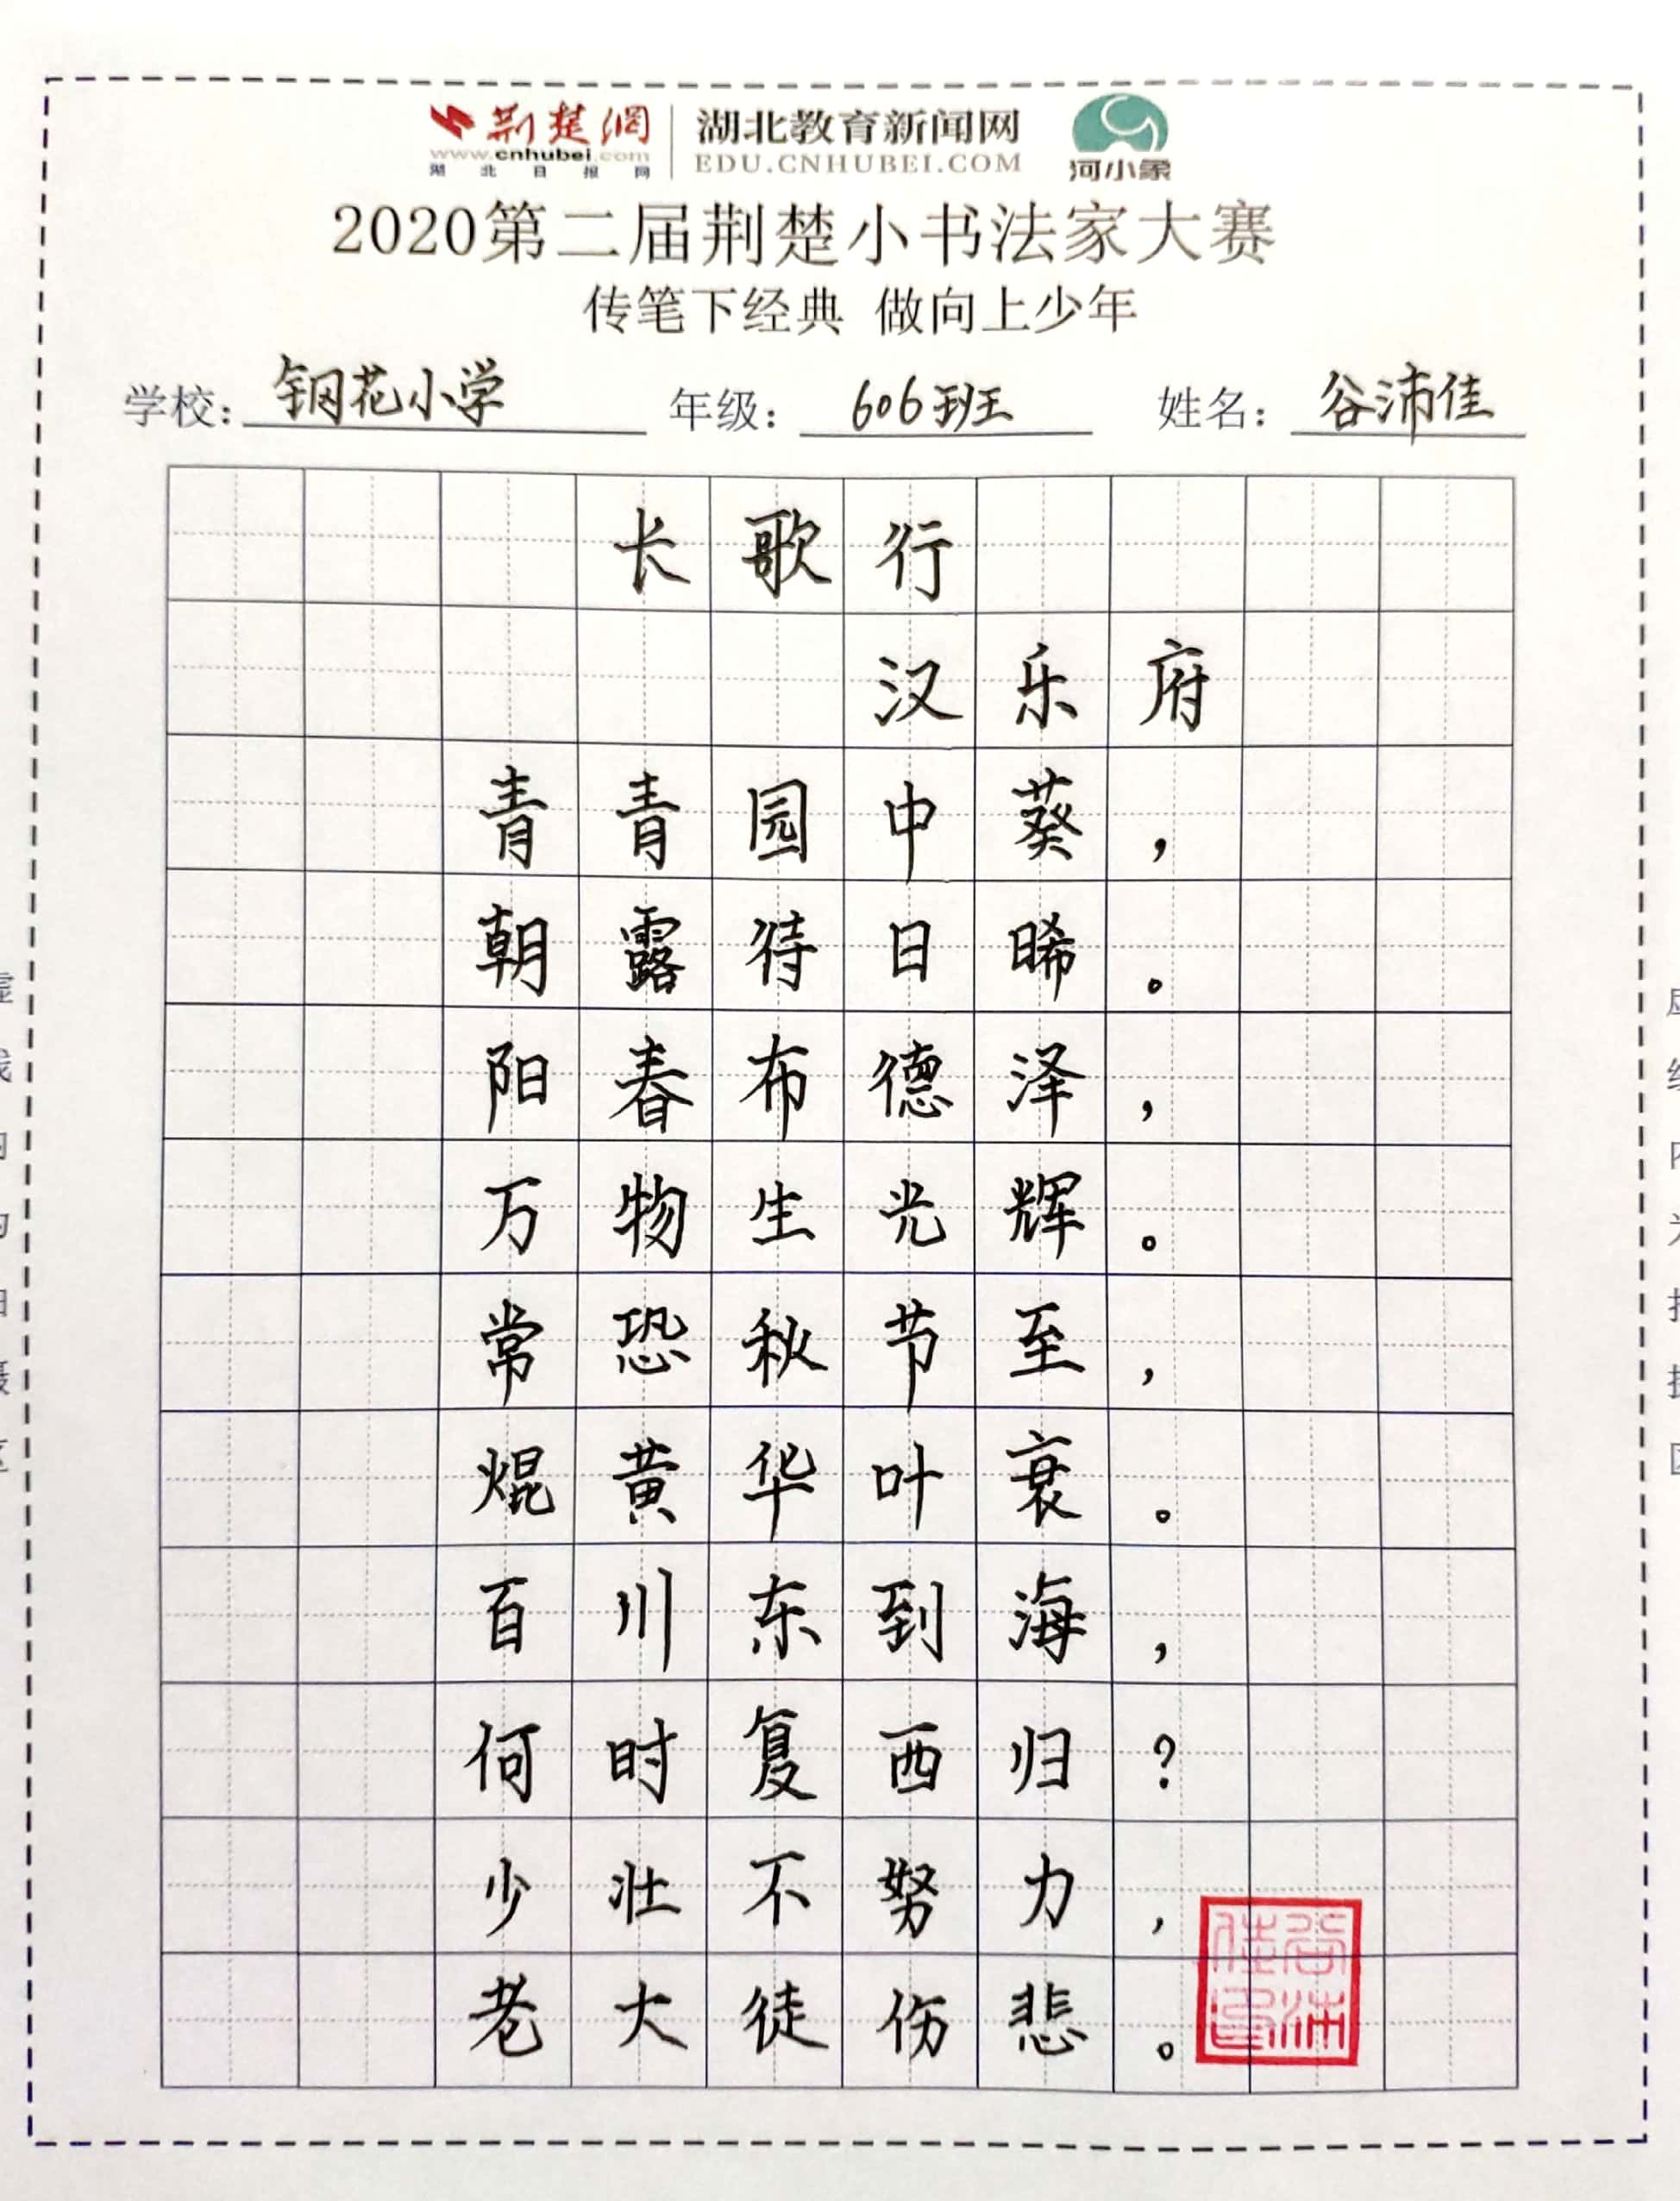 荆楚網 湖北教育新闻网
www.cnhubei.com EDU.CNHUBEI.COM
湖北日报网 河小象
2020第二届荆楚小书法家大赛
传笔下经典 做向上少年
学校：钢花小学 年级：606班 姓名：谷沛佳
长歌行
汉乐府
青青园中葵，
朝露待日晞。
阳春布德泽，
万物生光辉。
常恐秋节至，
焜黄华叶衰。
百川东到海，
何时复西归？
少壮不努力，
老大徒伤悲。
谷沛佳印